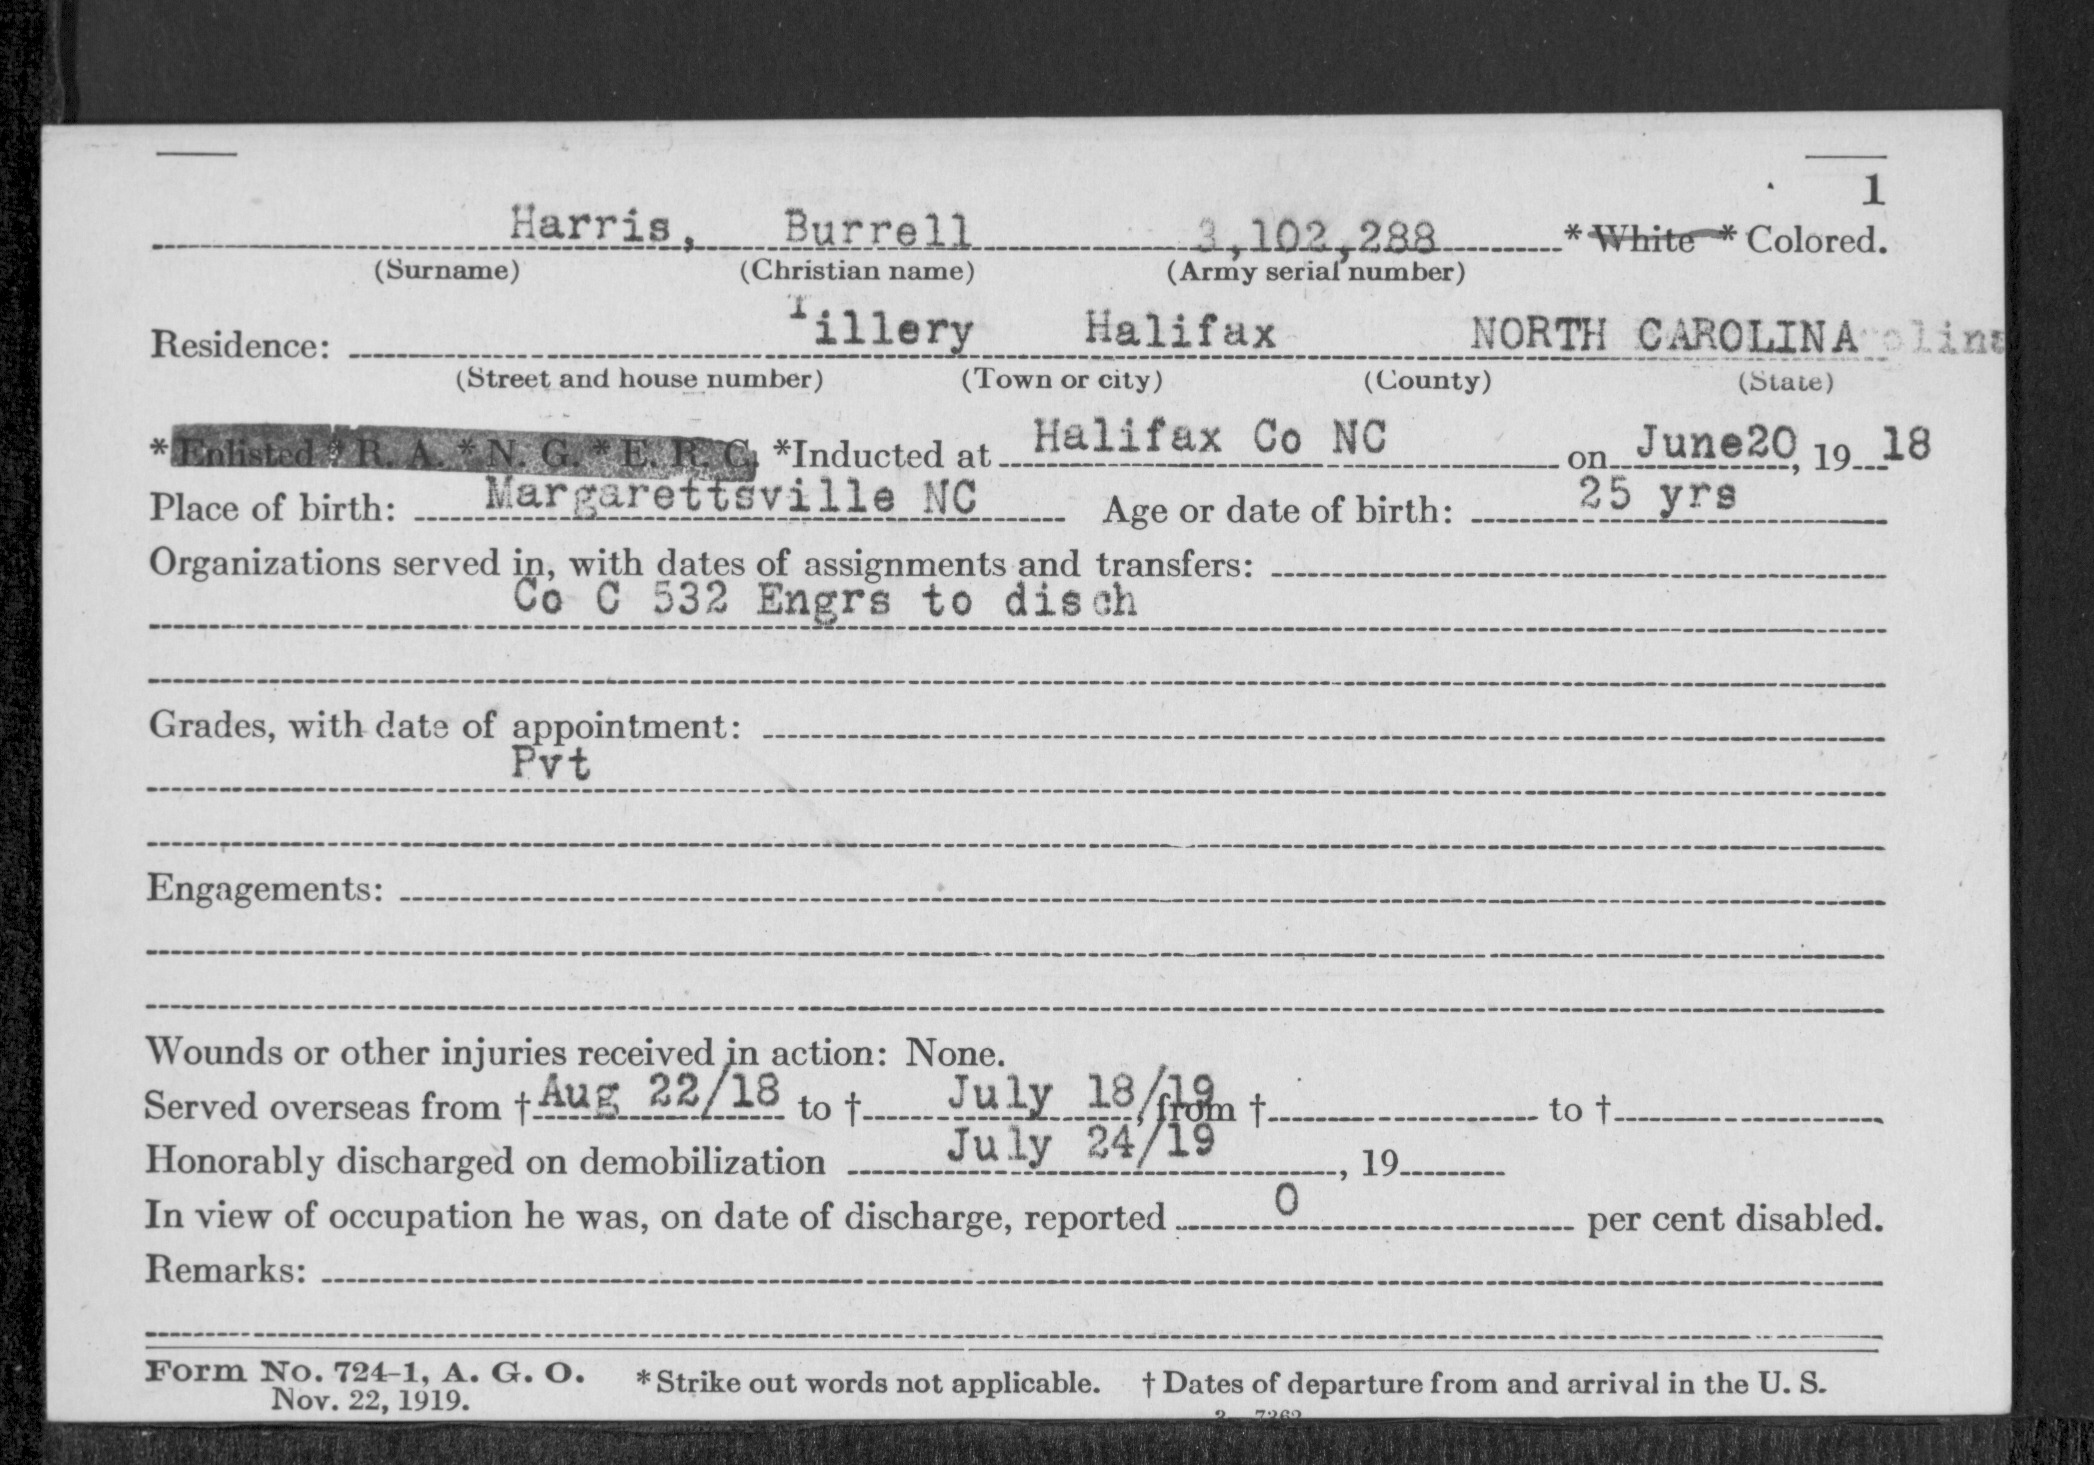 1
Harris, Burrell 3,102,288 * White * Colored.
(Surname) (Christian name) (Army serial number)
Residence: Tillery Halifax NORTH CAROLINA olina
(Street and house number) (Town or city) (County) (State)
* Enlisted * R. A. * N. G. * E. R. C. *Inducted at Halifax Co NC on June20, 19 18
Place of birth: Margarettsville NC Age or date of birth: 25 yrs
Organizations served in, with dates of assignments and transfers:
Co C 532 Engrs to disch
Grades, with date of appointment:
Pvt
Engagements:
Wounds or other injuries received in action: None.
Served overseas from † Aug 22/18 to † July 18/19, from † to †
Honorably discharged on demobilization July 24/19, 19
In view of occupation he was, on date of discharge, reported 0 per cent disabled.
Remarks:
Form No. 724-1, A. G. O. * Strike out words not applicable. † Dates of departure from and arrival in the U. S.
Nov. 22, 1919.